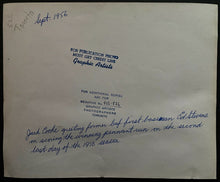 Sept. 1956
FOR PUBLICATION PROMO
MUST GET CREDIT LINE
Graphic Artists
FOR ADDITIONAL COPIES
ASK FOR
NEGATIVE NO.
GRAPHIC ARTISTS
PHOTOGRAPHERS
TORONTO
Jack Cooke greeting former Leaf first baseman Ed Stevens
in scoring the winning pennant run in the second
last day of the 1956 season